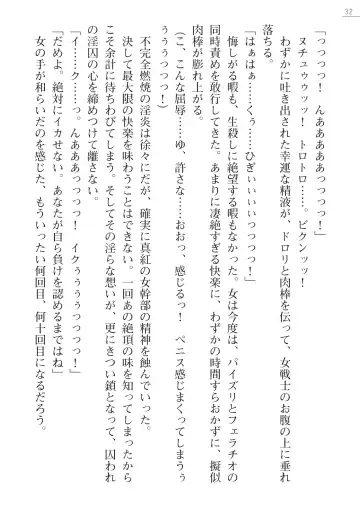 32
「っつつつ！　んああああああっつつつ！」
ヌチュゥゥッッ！　トロトロ……。ビクンッッ！
わずかに吐き出された幸運な精液が、ドロリと肉棒を伝って、女戦士のお腹の上に垂れ
落ちる。
「はぁはぁ……くぅ……ひぎぃぃぃぃっつつつ！」
悔しがる暇も、生殺しに絶望する暇もなかった。女は今度は、パイズリとフェラチオの
同時責めを敢行してきた。あまりに凄絶すぎる快楽に、わずかの時間すらおかずに、擬似
肉棒が膨れ上がる。
（こ、こんな屈辱……ゆ、許さな……おおっ、感じるっ！　ペニス感じまくってますぅぅ
ぅぅぅっつつつ！）
不完全燃焼の淫炎は徐々にだが、確実に真紅の女幹部の精神を蝕んでいった。
決して最大限の快楽を味わうことはできない。一回あの絶頂の味を知ってしまったから
こそ余計に待ちわびてしまう。そしてその淫らな想いが、更にきつい鎖となって、囚われ
の淫囚の心を締めつけて離さない。
「イ……ク……っ。んああああっつつつ！　イクぅぅぅぅっつつつ！」
「だめよ。絶対にイカせない。あなたが自ら負けを認めるまではね」
女の手が和らいだのを感じた、もういったい何回目、何十回目になるだろう。